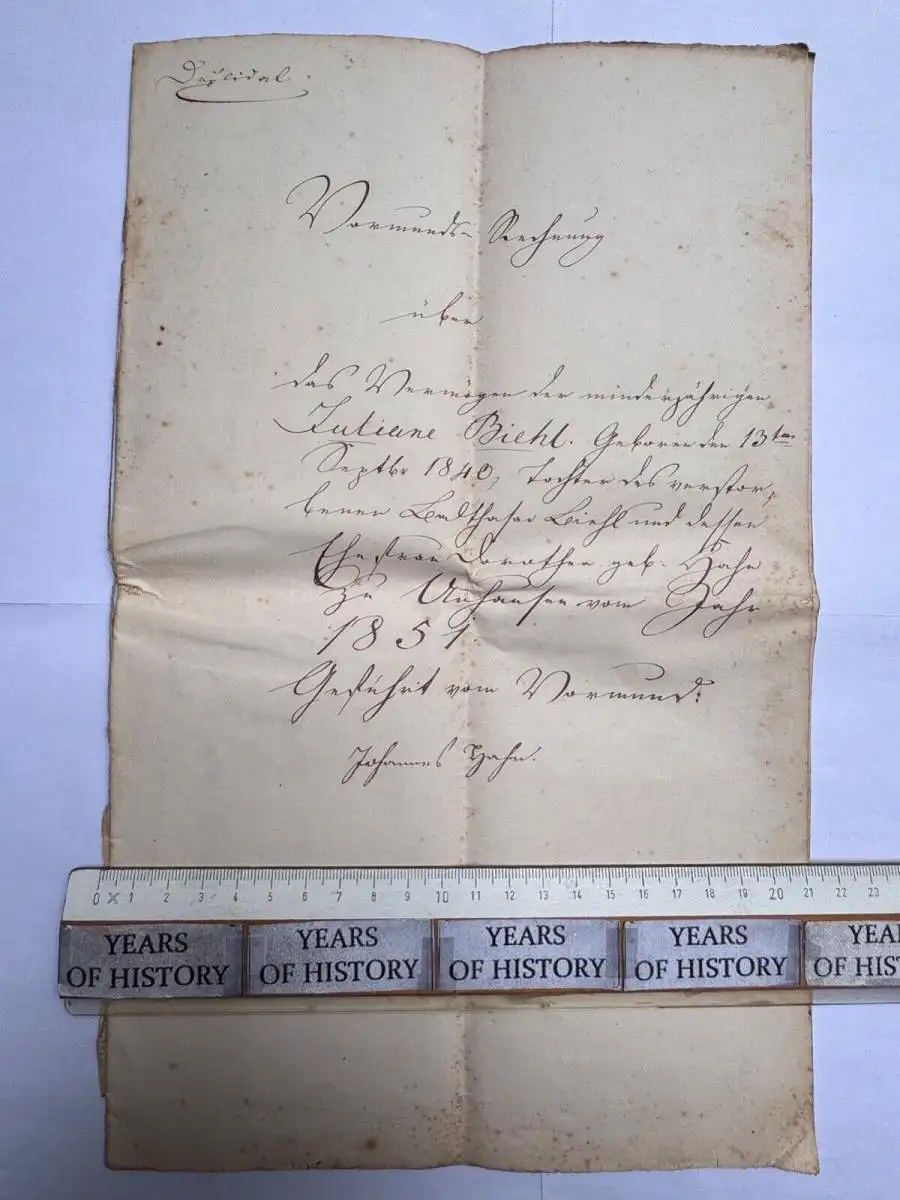 Duplicat.
Vormunds-Rechnung
über
das Vermögen der minderjährigen
Juliane Biehl. Geboren den 13ten
Septbr 1840, Tochter des verstor-
benen Balthasar Biehl und dessen
Ehefrau Dorothea geb. Hahn
zu Anhausen vom Jahr
1851
Geführt vom Vormund:
Johannes Hahn.
0 1 2 3 4 5 6 7 8 9 10 11 12 13 14 15 16 17 18 19 20 21 22 23
YEARS OF HISTORY YEARS OF HISTORY YEARS OF HISTORY YEARS OF HISTORY YEA
OF HIS